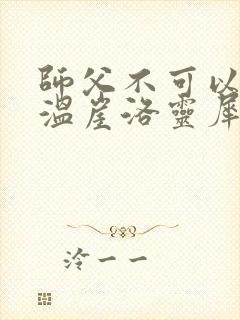 師父不可以
溫崖洛靈犀
泠一一